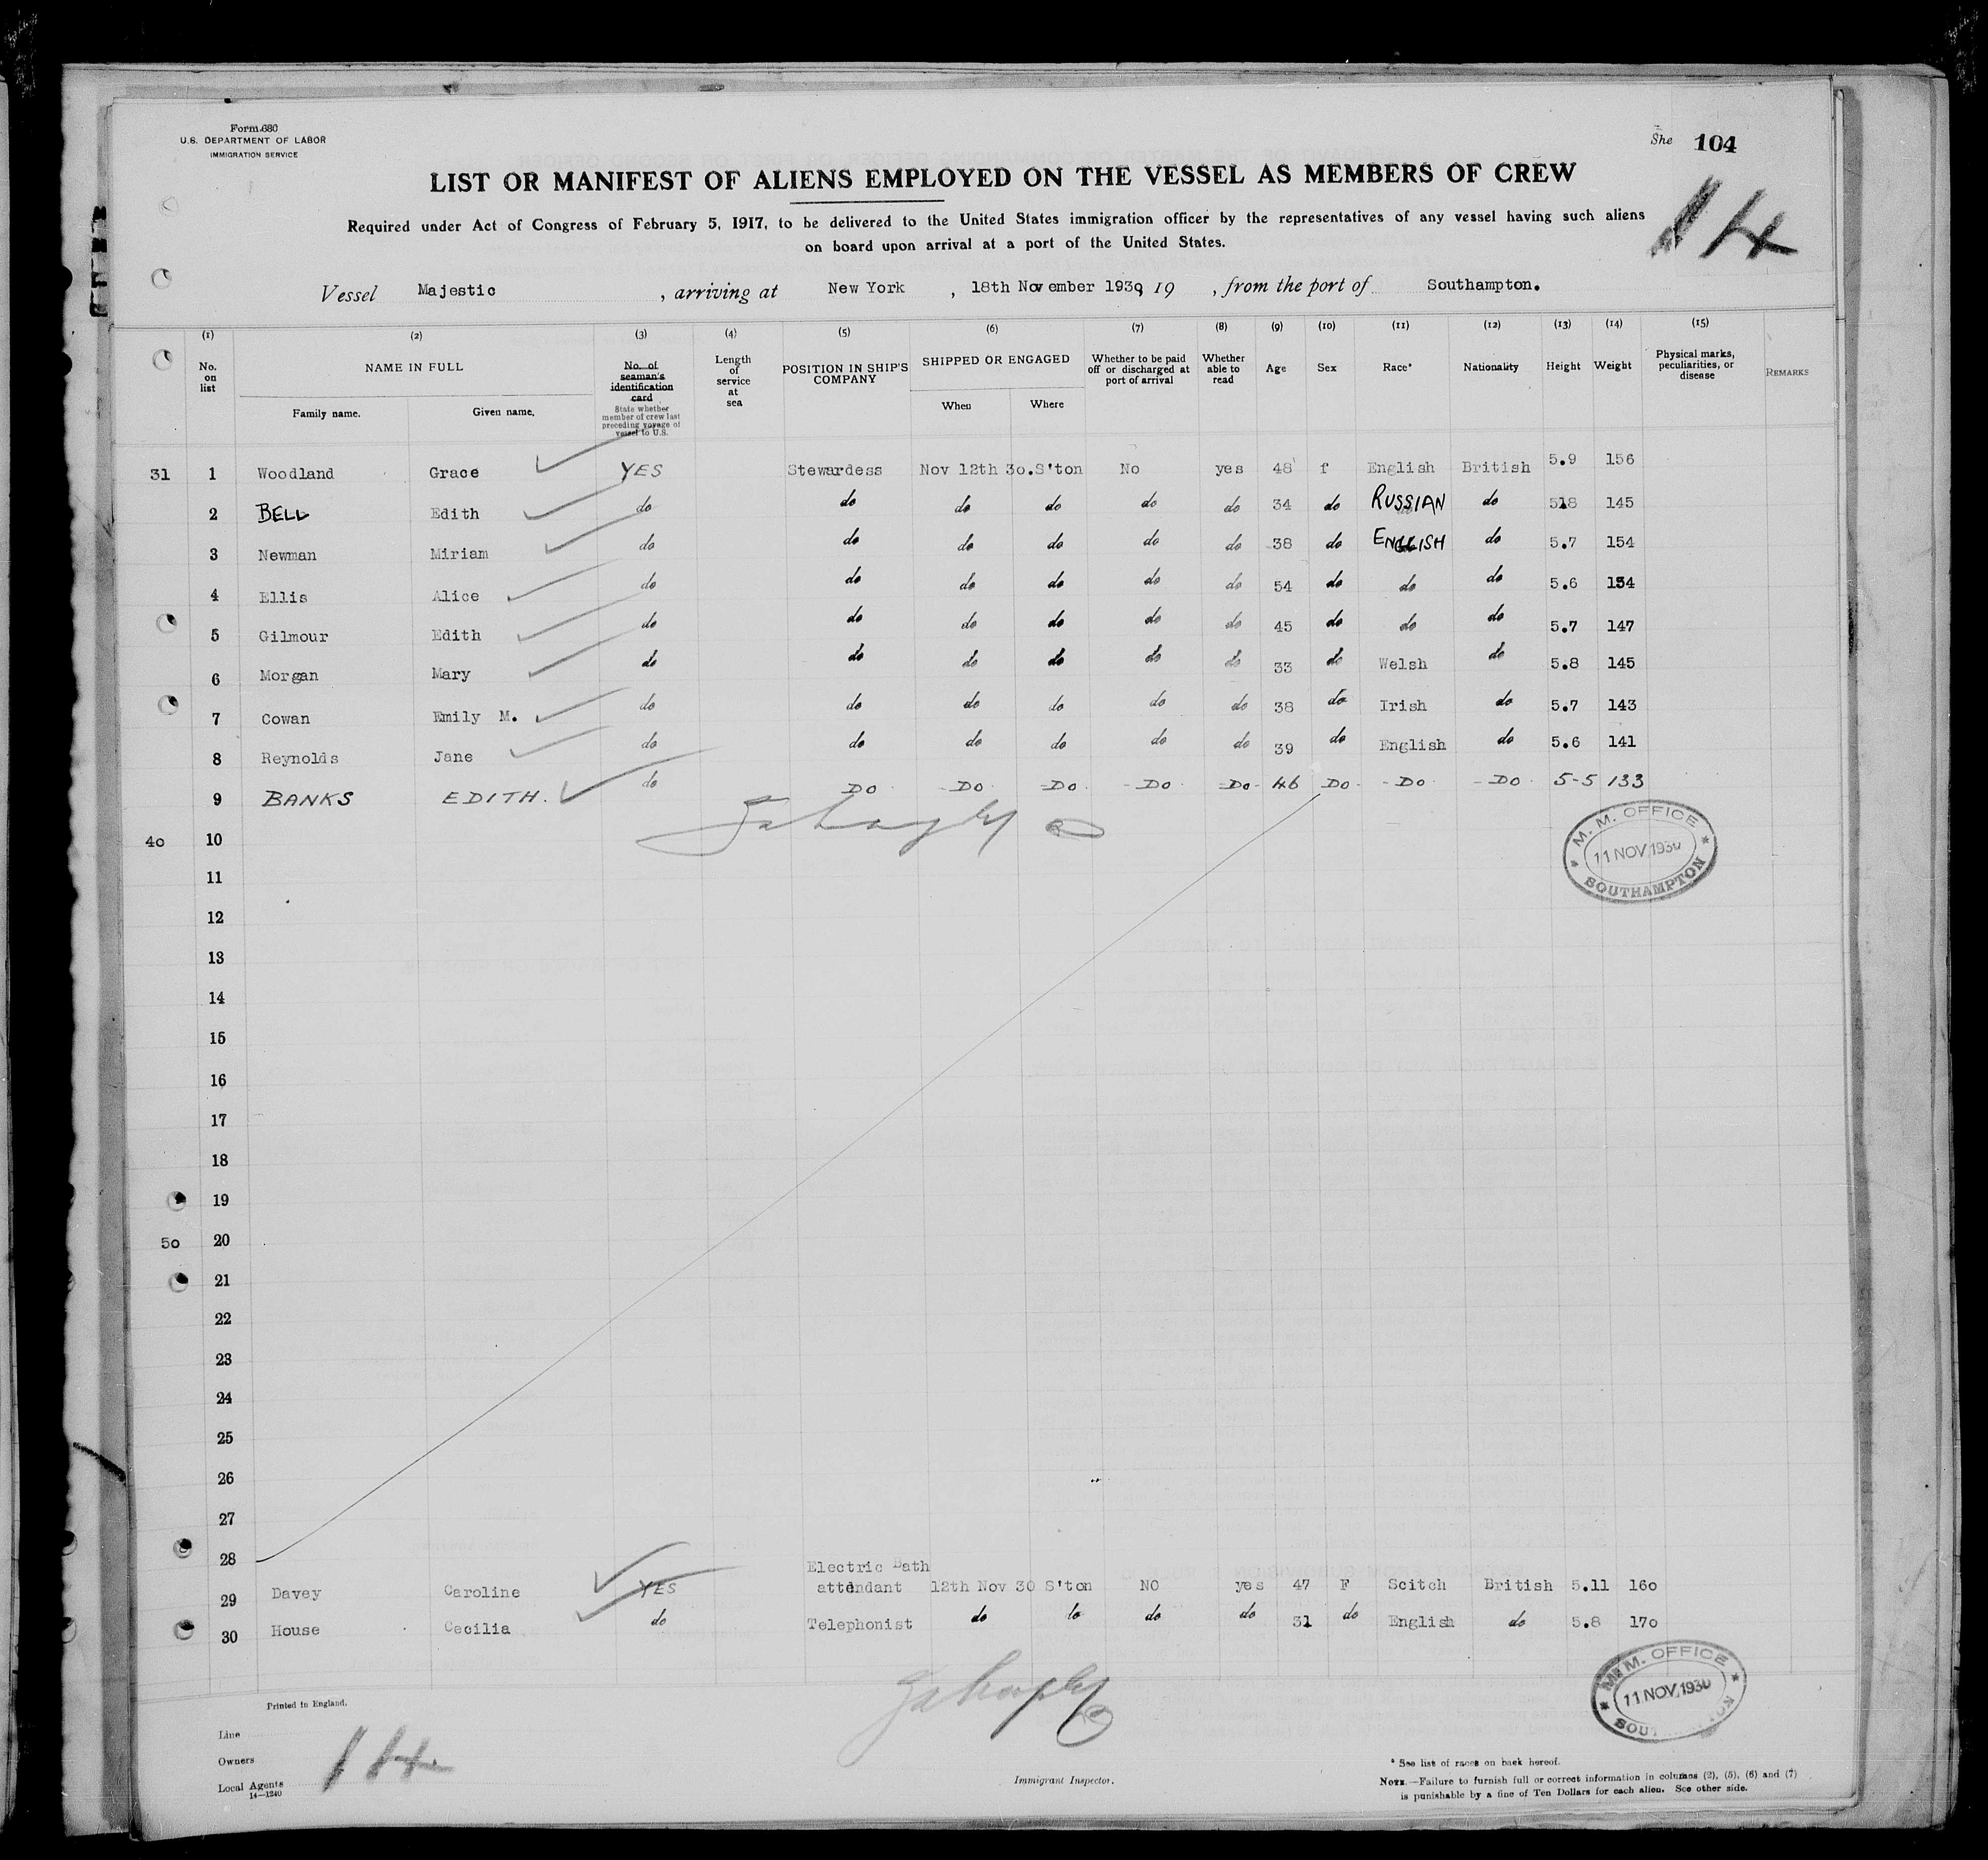 Form 680
U.S. DEPARTMENT OF LABOR
IMMIGRATION SERVICE
She 104
LIST OR MANIFEST OF ALIENS EMPLOYED ON THE VESSEL AS MEMBERS OF CREW
Required under Act of Congress of February 5, 1917, to be delivered to the United States immigration officer by the representatives of any vessel having such aliens
on board upon arrival at a port of the United States.
Vessel Majestic , arriving at New York , 18th November 1930 19 , from the port of Southampton.
(1) (2) (3) (4) (5) (6) (7) (8) (9) (10) (11) (12) (13) (14) (15)
No. on list NAME IN FULL Family name. Given name. No. of seaman's identification card State whether member of crew last preceding voyage of vessel to U.S. Length of service at sea POSITION IN SHIP'S COMPANY SHIPPED OR ENGAGED When Where Whether to be paid off or discharged at port of arrival Whether able to read Age Sex Race* Nationality Height Weight Physical marks, peculiarities, or disease REMARKS
31 1 Woodland Grace YES Stewardess Nov 12th 30. S'ton No yes 48 f English British 5.9 156
2 BELL Edith do do do do do do 34 do RUSSIAN do 518 145
3 Newman Miriam do do do do do do 38 do ENGLISH do 5.7 154
4 Ellis Alice do do do do do do 54 do do do 5.6 154
5 Gilmour Edith do do do do do do 45 do do do 5.7 147
6 Morgan Mary do do do do do do 33 do Welsh do 5.8 145
7 Cowan Emily M. do do do do do do 38 do Irish do 5.7 143
8 Reynolds Jane do do do do do do 39 do English do 5.6 141
9 BANKS EDITH. do DO DO DO DO DO 46 DO DO DO 5-5 133
40 10
M. M. OFFICE
11 NOV 1930
SOUTHAMPTON
11
12
13
14
15
16
17
18
19
50 20
21
22
23
24
25
26
27
28
29 Davey Caroline YES Electric Bath attendant 12th Nov 30 S'ton NO yes 47 F Scitch British 5.11 160
30 House Cecilia do Telephonist do do do do 31 do English do 5.8 170
M.M. OFFICE
11 NOV 1930
Printed in England.
Line
Owners
Local Agents
14—1240
Immigrant Inspector.
* See list of races on back hereof.
NOTE.—Failure to furnish full or correct information in columns (2), (5), (6) and (7)
is punishable by a fine of Ten Dollars for each alien. See other side.